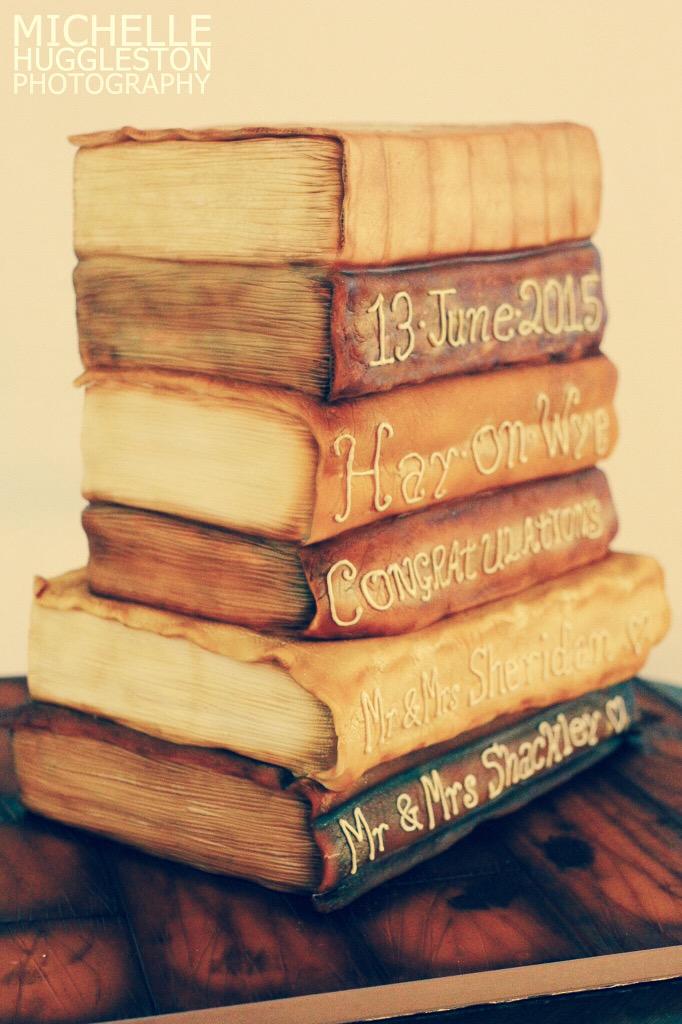 MICHELLE
HUGGLESTON
PHOTOGRAPHY
13·June·2015
Hay·on·Wye
CONGRATULATIONS
Mr & Mrs Sheridan ♡
Mr & Mrs Shackley ♡